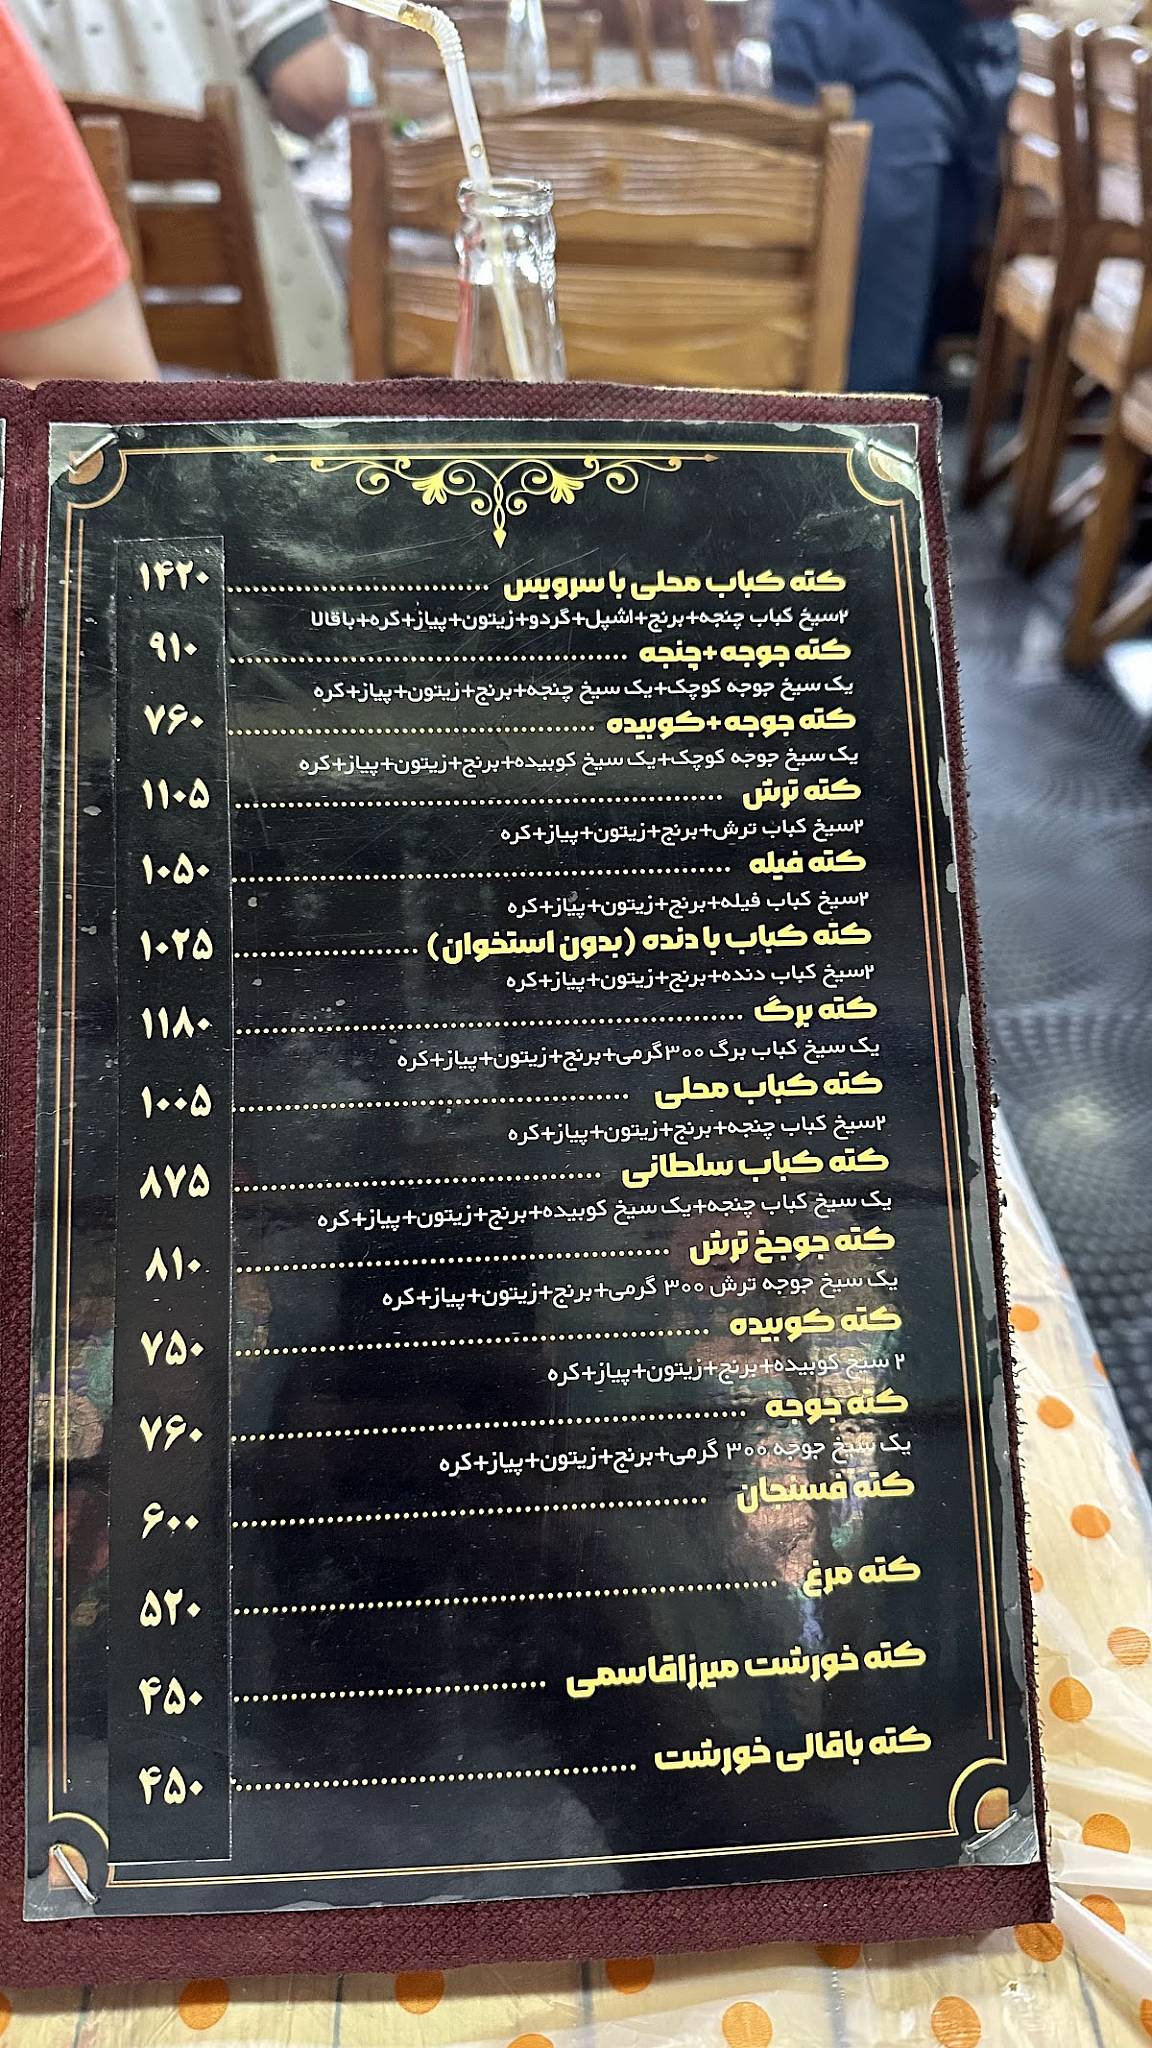 کته کباب محلی با سرویس ........ ۱۴۲۰
۲سیخ کباب چنجه+برنج+اشپل+گردو+زیتون+پیاز+کره+باقالا
کته جوجه+چنجه ........ ۹۱۰
یک سیخ جوجه کوچک+یک سیخ چنجه+برنج+زیتون+پیاز+کره
کته جوجه+کوبیده ........ ۷۶۰
یک سیخ جوجه کوچک+یک سیخ کوبیده+برنج+زیتون+پیاز+کره
کته ترش ........ ۱۱۰۵
۲سیخ کباب ترش+برنج+زیتون+پیاز+کره
کته فیله ........ ۱۰۵۰
۲سیخ کباب فیله+برنج+زیتون+پیاز+کره
کته کباب با دنده (بدون استخوان) ........ ۱۰۲۵
۲سیخ کباب دنده+برنج+زیتون+پیاز+کره
کته برگ ........ ۱۱۸۰
یک سیخ کباب برگ ۳۰۰گرمی+برنج+زیتون+پیاز+کره
کته کباب محلی ........ ۱۰۰۵
۲سیخ کباب چنجه+برنج+زیتون+پیاز+کره
کته کباب سلطانی ........ ۸۷۵
یک سیخ کباب چنجه+یک سیخ کوبیده+برنج+زیتون+پیاز+کره
کته جوجخ ترش ........ ۸۱۰
یک سیخ جوجه ترش ۳۰۰ گرمی+برنج+زیتون+پیاز+کره
کته کوبیده ........ ۷۵۰
۲ سیخ کوبیده+برنج+زیتون+پیاز+کره
کته جوجه ........ ۷۶۰
یک سیخ جوجه ۳۰۰ گرمی+برنج+زیتون+پیاز+کره
کته فسنجان ........ ۶۰۰
کته مرغ ........ ۵۲۰
کته خورشت میرزاقاسمی ........ ۴۵۰
کته باقالی خورشت ........ ۴۵۰